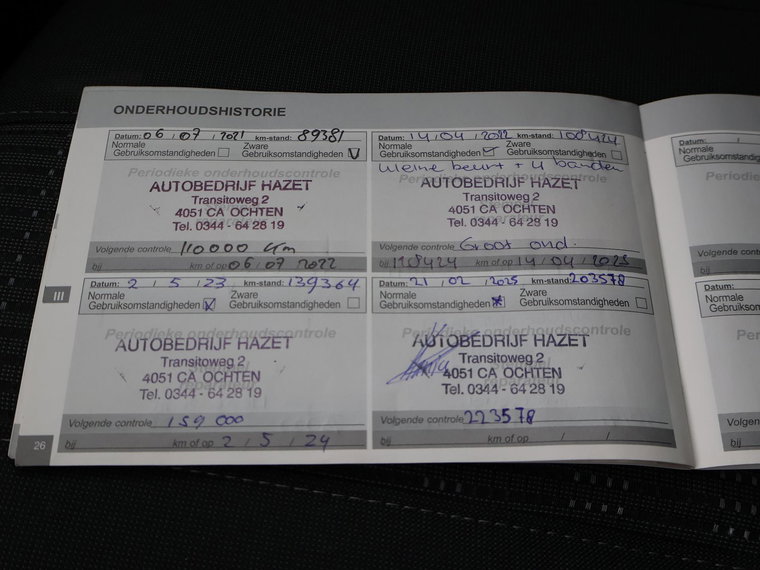 ONDERHOUDSHISTORIE
Datum: 06 / 07 / 2021 km-stand: 89381
Normale Gebruiksomstandigheden
Zware Gebruiksomstandigheden V
Periodieke onderhoudscontrole
AUTOBEDRIJF HAZET
Transitoweg 2
4051 CA OCHTEN
Tel. 0344 - 64 28 19
Volgende controle 110000 km
bij km of op 06 / 07 / 2022
Datum: 14 / 04 / 2022 km-stand: 108424
Normale Gebruiksomstandigheden
Zware Gebruiksomstandigheden
kleine beurt + 4 banden
Periodieke onderhoudscontrole
AUTOBEDRIJF HAZET
Transitoweg 2
4051 CA OCHTEN
Tel. 0344 - 64 28 19
Volgende controle Groot ond.
bij 128424 km of op 14 / 04 / 2023
III
Datum: 2 / 5 / 23 km-stand: 139364
Normale Gebruiksomstandigheden X
Zware Gebruiksomstandigheden
Periodieke onderhoudscontrole
AUTOBEDRIJF HAZET
Transitoweg 2
4051 CA OCHTEN
Tel. 0344 - 64 28 19
Volgende controle 159 000
bij km of op 2 / 5 / 24
Datum: 21 / 02 / 2025 km-stand: 203578
Normale Gebruiksomstandigheden X
Zware Gebruiksomstandigheden
Periodieke onderhoudscontrole
AUTOBEDRIJF HAZET
Transitoweg 2
4051 CA OCHTEN
Tel. 0344 - 64 28 19
Volgende controle 223578
bij km of op / /
26
Datum: /
Normale
Volgende
bij
Datum:
Normale
Volgende
bij